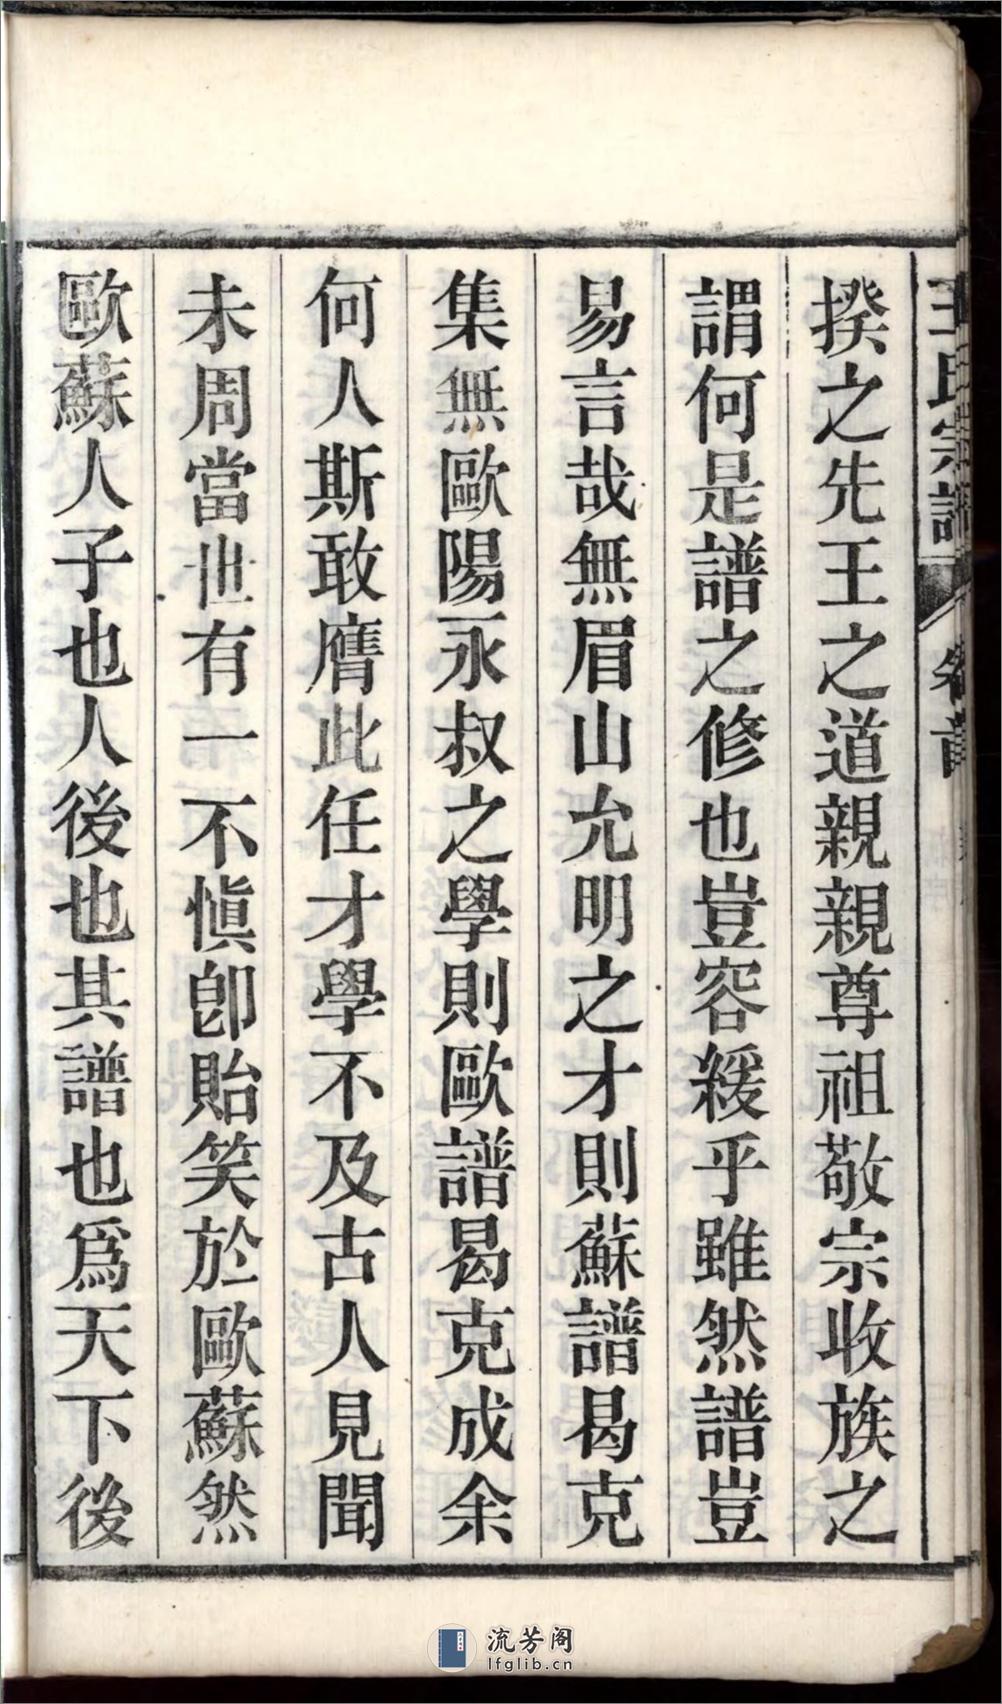 王氏宗譜
卷首
揆之先王之道親親尊祖敬宗收族之
謂何是譜之修也豈容緩乎雖然譜豈
易言哉無眉山允明之才則蘇譜曷克
集無歐陽永叔之學則歐譜曷克成余
何人斯敢膺此任才學不及古人見聞
未周當世有一不慎卽貽笑於歐蘇然
歐蘇人子也人後也其譜也爲天下後
流芳阁
lfglib.cn